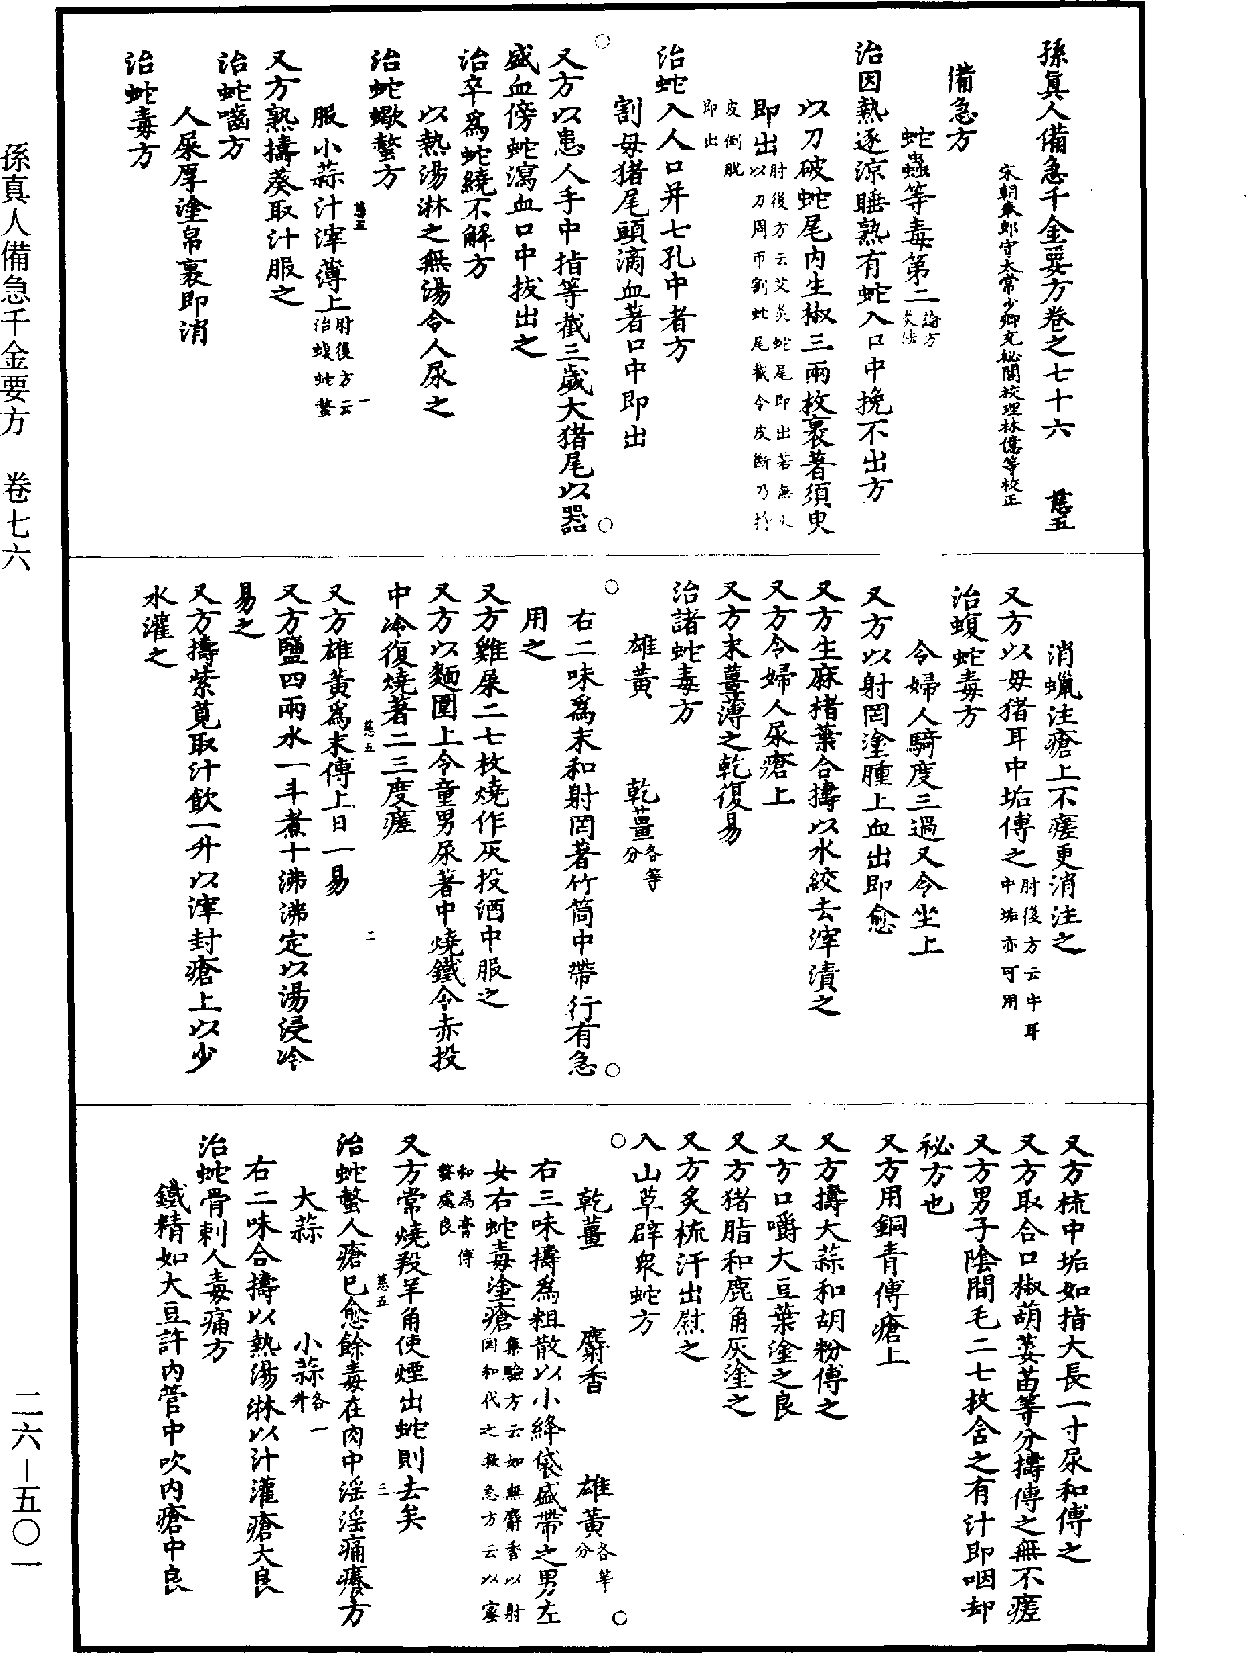 孫真人備急千金要方卷之七十六 慈五
宋朝奉郎守太常少卿充秘閣校理林億等校正
備急方
蛇蟲等毒第二論方灸法
治因熱逐涼睡熟有蛇入口中挽不出方
以刀破蛇尾內生椒三兩枚裹著須臾
即出肘後方云艾灸蛇尾即出若無火以刀周帀割蛇尾截令皮斷乃捋
皮倒脫即出
治蛇入人口并七孔中者方
割母豬尾頭滴血著口中即出
又方以患人手中指等截三歲大豬尾以器
盛血傍蛇瀉血口中拔出之
治卒為蛇繞不解方
以熱湯淋之無湯令人尿之
治蛇蠍螫方
服小蒜汁滓薄上肘後方云治蝮蛇螫
又方熟擣葵取汁服之
治蛇嚙方
人屎厚塗帛裹即消
治蛇毒方
消蠟注瘡上不瘥更消注之
又方以母豬耳中垢傅之肘後方云牛耳中垢亦可用
治蝮蛇毒方
令婦人騎度三過又令坐上
又方以射罔塗腫上血出即愈
又方生麻楮葉合擣以水絞去滓漬之
又方令婦人尿瘡上
又方末薑薄之乾復易
治諸蛇毒方
雄黃 乾薑各等分
右二味為末和射罔著竹筒中帶行有急
用之
又方雞屎二七枚燒作灰投酒中服之
又方以麵圍上令童男尿著中燒鐵令赤投
中冷復燒著二三度瘥
又方雄黃為末傅上日一易
又方鹽四兩水一斗煮十沸沸定以湯浸冷
易之
又方擣紫莧取汁飲一升以滓封瘡上以少
水灌之
又方梳中垢如指大長一寸尿和傅之
又方取合口椒葫荽苗等分擣傅之無不瘥
又方男子陰間毛二七枚含之有汁即咽卻
秘方也
又方用銅青傅瘡上
又方擣大蒜和胡粉傅之
又方口嚼大豆葉塗之良
又方豬脂和鹿角灰塗之
又方炙梳汗出熨之
入山草辟眾蛇方
乾薑 麝香 雄黃各等分
右三味擣為粗散以小絳袋盛帶之男左
女右蛇毒塗瘡集驗方云如無麝香以射罔和代之救急方云以蜜
和為膏傅螫處良
又方常燒羖羊角使煙出蛇則去矣
治蛇螫人瘡已愈餘毒在肉中淫淫痛癢方
大蒜 小蒜各一升
右二味合擣以熱湯淋以汁灌瘡大良
治蛇骨刺人毒痛方
鐵精如大豆許內管中吹內瘡中良
慈五 一
慈五 二
慈五 三
孫真人備急千金要方 卷七六
二六—五〇一